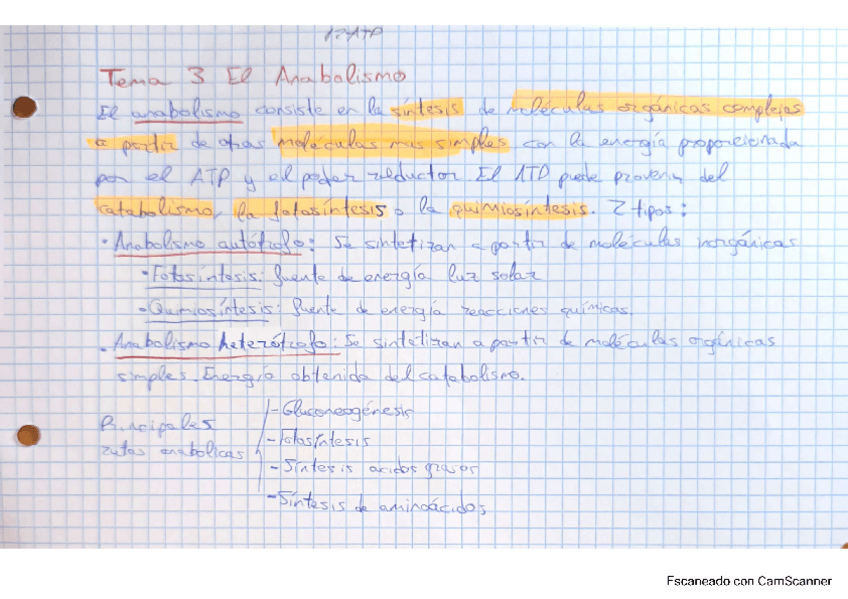 12 ATP
Tema 3 El Anabolismo
El anabolismo consiste en la síntesis de moléculas orgánicas complejas
a partir de otras moléculas mas simples con la energía proporcionada
por el ATP y el poder reductor. El ATP puede provenir del
catabolismo, la fotosíntesis o la quimiosíntesis. 2 tipos:
• Anabolismo autótrofo: Se sintetizan a partir de moléculas inorgánicas
• Fotosíntesis: fuente de energía luz solar
• Quimiosíntesis: fuente de energía reacciones químicas.
• Anabolismo heterótrofo: Se sintetizan a partir de moléculas orgánicas
simples. Energía obtenida del catabolismo.
Principales
rutas anabolicas
- Gluconeogénesis
- Fotosíntesis
- Síntesis acidos grasos
- Síntesis de aminoácidos
Escaneado con CamScanner